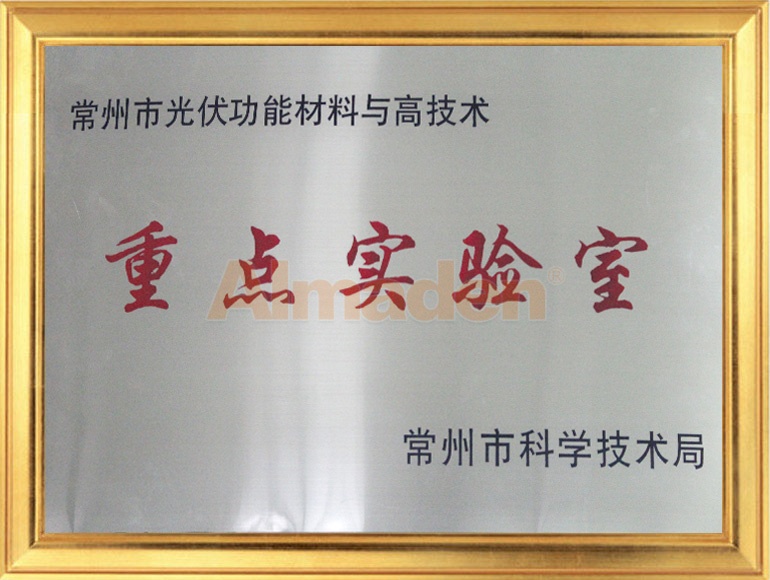 常州市光伏功能材料与高技术
重点实验室
Almaden®
常州市科学技术局